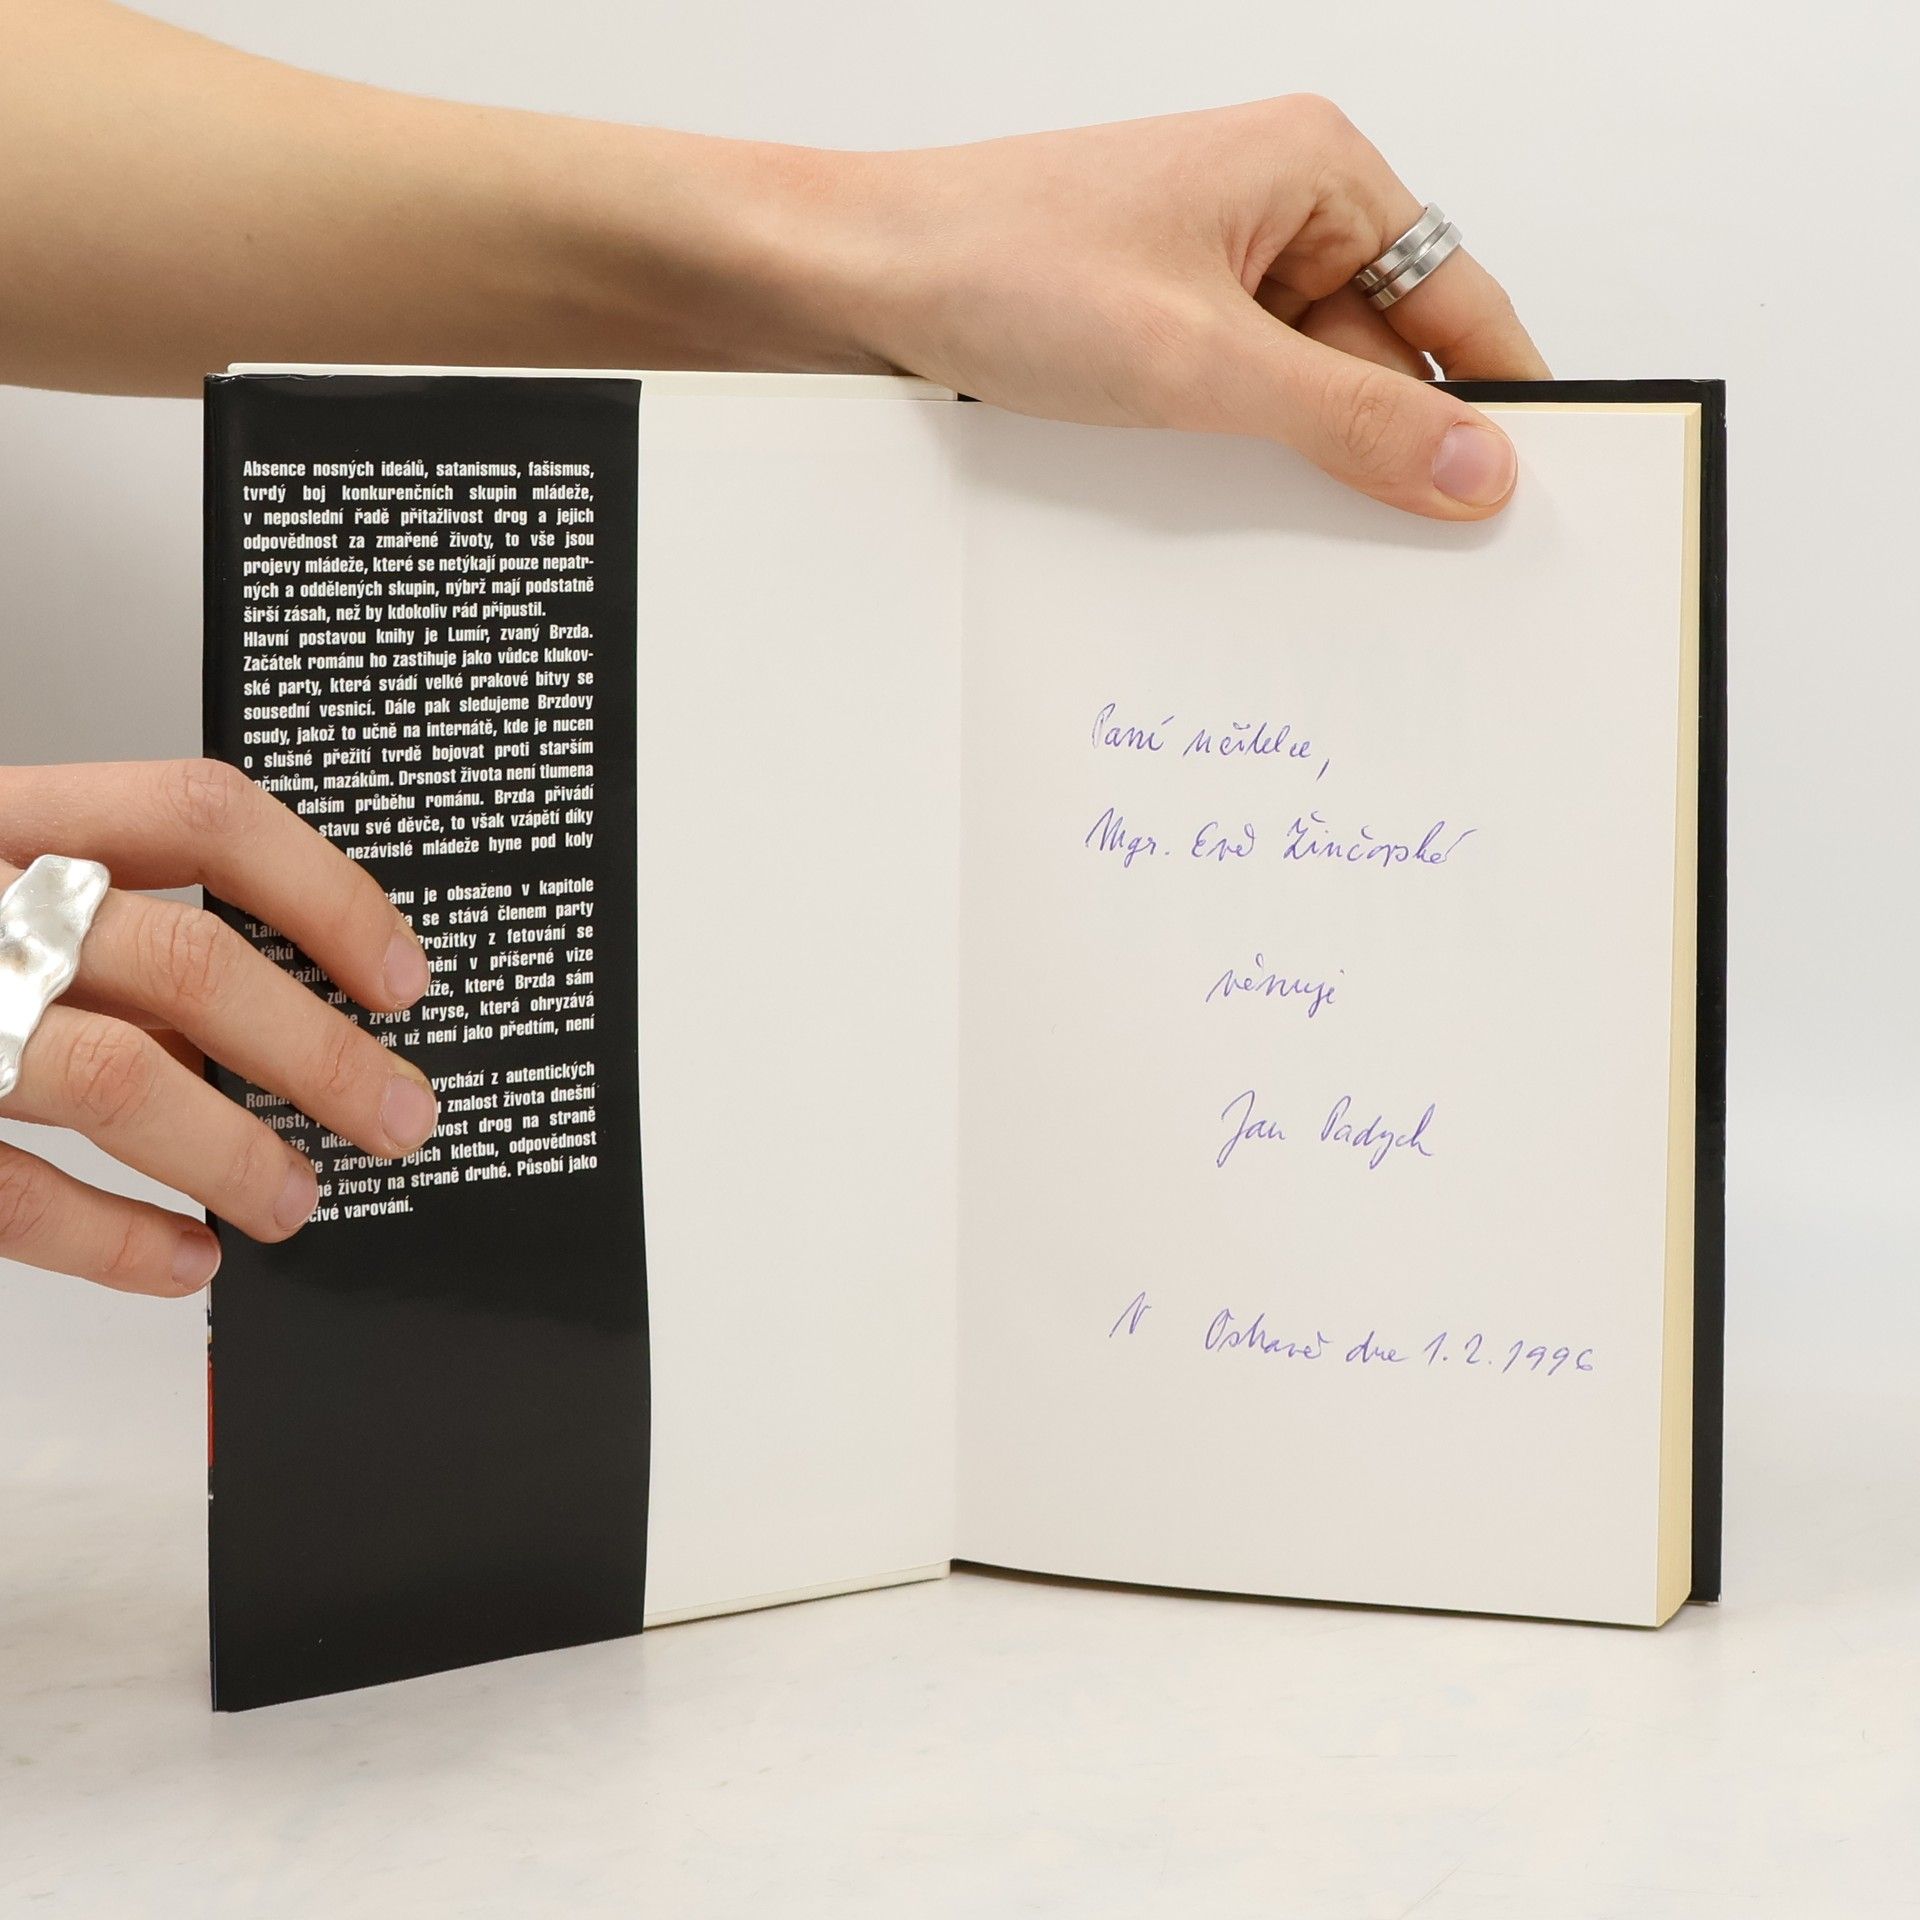 Absence nosných ideálů, satanismus, fašismus,
tvrdý boj konkurenčních skupin mládeže,
v neposlední řadě přitažlivost drog a jejich
odpovědnost za zmařené životy, to vše jsou
projevy mládeže, které se netýkají pouze nepatr-
ných a oddělených skupin, nýbrž mají podstatně
širší zásah, než by kdokoliv rád připustil.
Hlavní postavou knihy je Lumír, zvaný Brzda.
Začátek románu ho zastihuje jako vůdce klukov-
ské party, která svádí velké prakové bitvy se
sousední vesnicí. Dále pak sledujeme Brzdovy
osudy, jakož to učně na internátě, kde je nucen
o slušné přežití tvrdě bojovat proti starším
očníkům, mazákům. Drsnost života není tlumena
dalším průběhu románu. Brzda přivádí
stavu své děvče, to však vzápětí díky
nezávislé mládeže hyne pod koly
ánu je obsaženo v kapitole
se stává členem party
Prožitky z fetování se
mění v příšerné vize
tíže, které Brzda sám
zravé kryse, která ohryzává
věk už není jako předtím, není
vychází z autentických
znalost života dnešní
ivost drog na straně
zároveň jejich kletbu, odpovědnost
né životy na straně druhé. Působí jako
čivé varování.
Paní učitelce,
Mgr. Evě Žinčorské
věnuje
Jan Padych
V Ostravě dne 1.2.1996